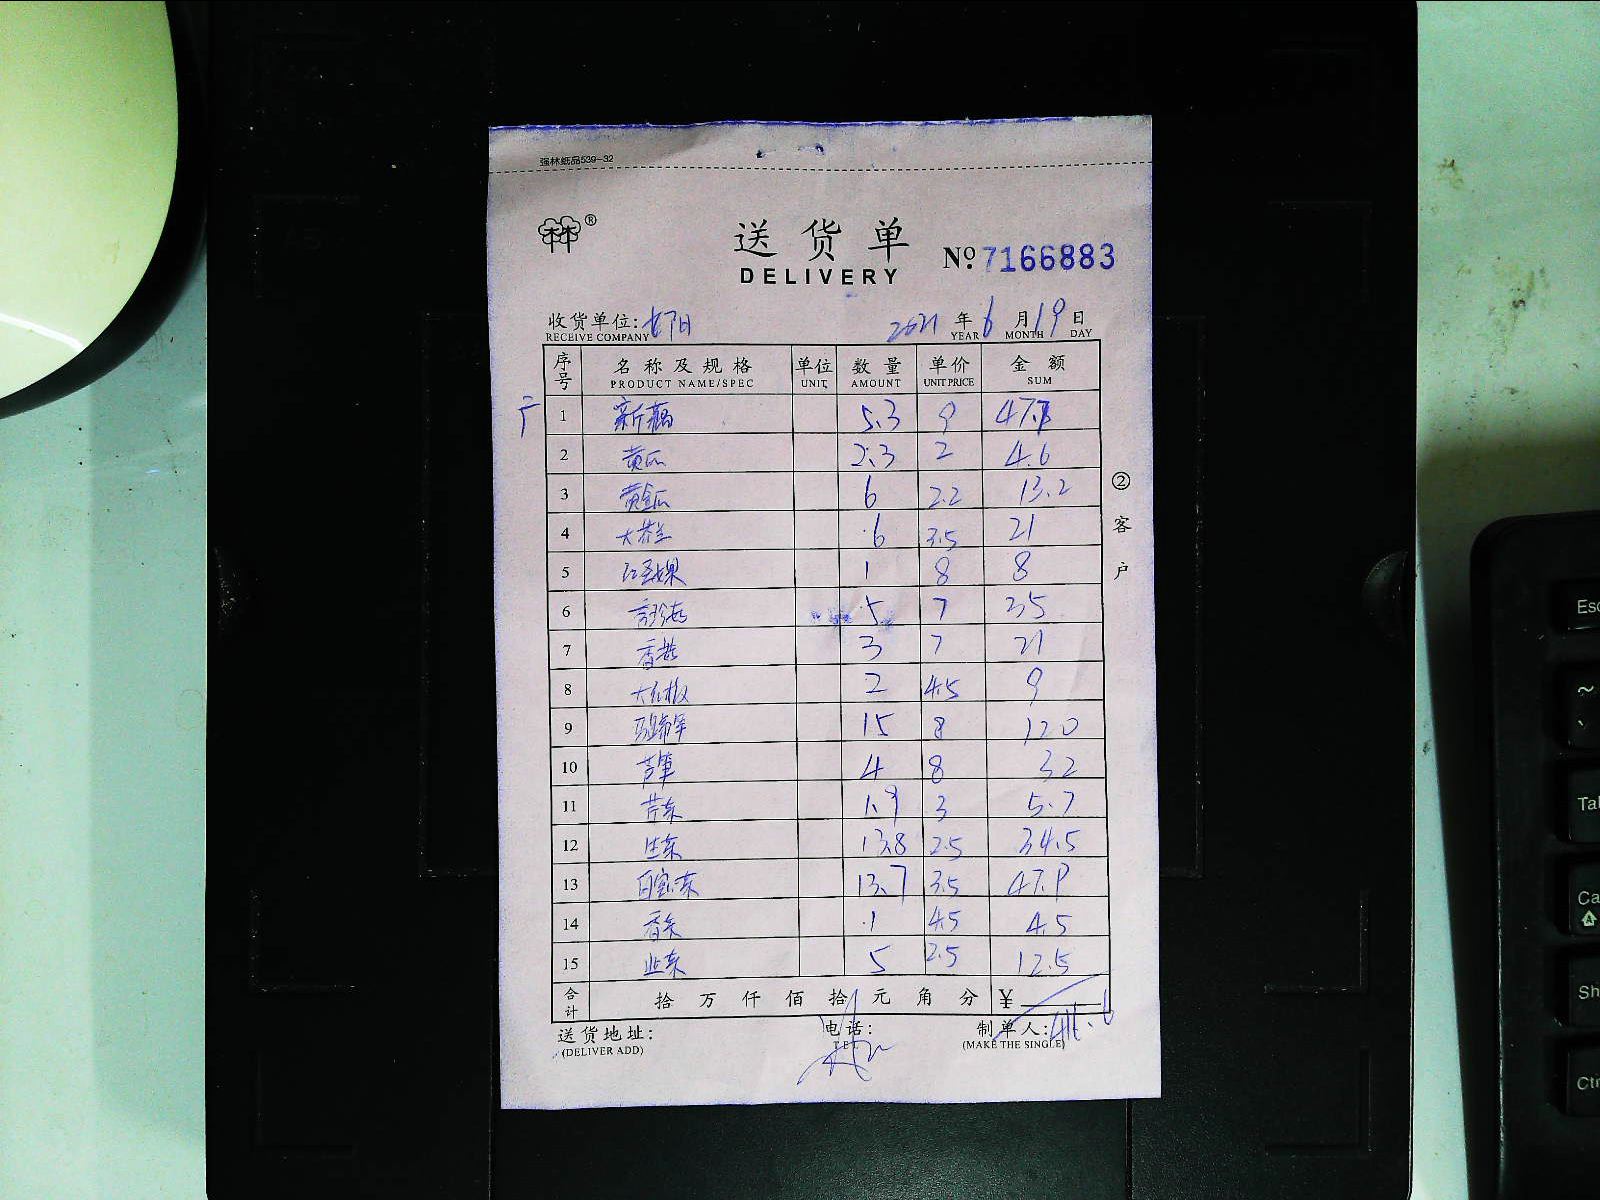 强林纸品539-32
林林®
送货单
DELIVERY
№ 7166883
收货单位: 2021 年 6 月 19 日
RECEIVE COMPANY YEAR MONTH DAY
序号 名称及规格 单位 数量 单价 金额
PRODUCT NAME/SPEC UNIT. AMOUNT UNIT PRICE SUM
1 新藕 5.3 9 47.7
2 黄瓜 2.3 2 4.6
3 黄金瓜 6 2.2 13.2
4 大芥兰 6 3.5 21
5 红圣女果 1 8 8
6 5 7 35
7 香菇 3 7 21
8 大红椒 2 4.5 9
9 马蹄 15 8 120
10 芦笋 4 8 32
11 芹菜 1.9 3 5.7
12 生菜 13.8 2.5 34.5
13 13.7 3.5 47.9
14 香菜 1 4.5 4.5
15 韭菜 5 2.5 12.5
合计 拾万仟佰拾元角分 ¥
②客户
送货地址: 电话: 制单人:
(DELIVER ADD) TEL (MAKE THE SINGLE)
Esc
~
Tab
Ca
A
Sh
Ctr